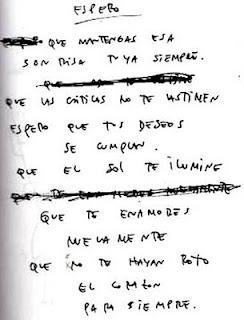 ESPERO
QUE MANTENGAS ESA
SONRISA TUYA SIEMPRE.
QUE LAS CRÍTICAS NO TE LASTIMEN
ESPERO QUE TUS DESEOS
SE CUMPLAN.
QUE EL SOL TE ILUMINE
QUE TE ENAMORES
NUEVAMENTE
QUE NO TE HAYAN ROTO
EL CORAZON
PARA SIEMPRE.